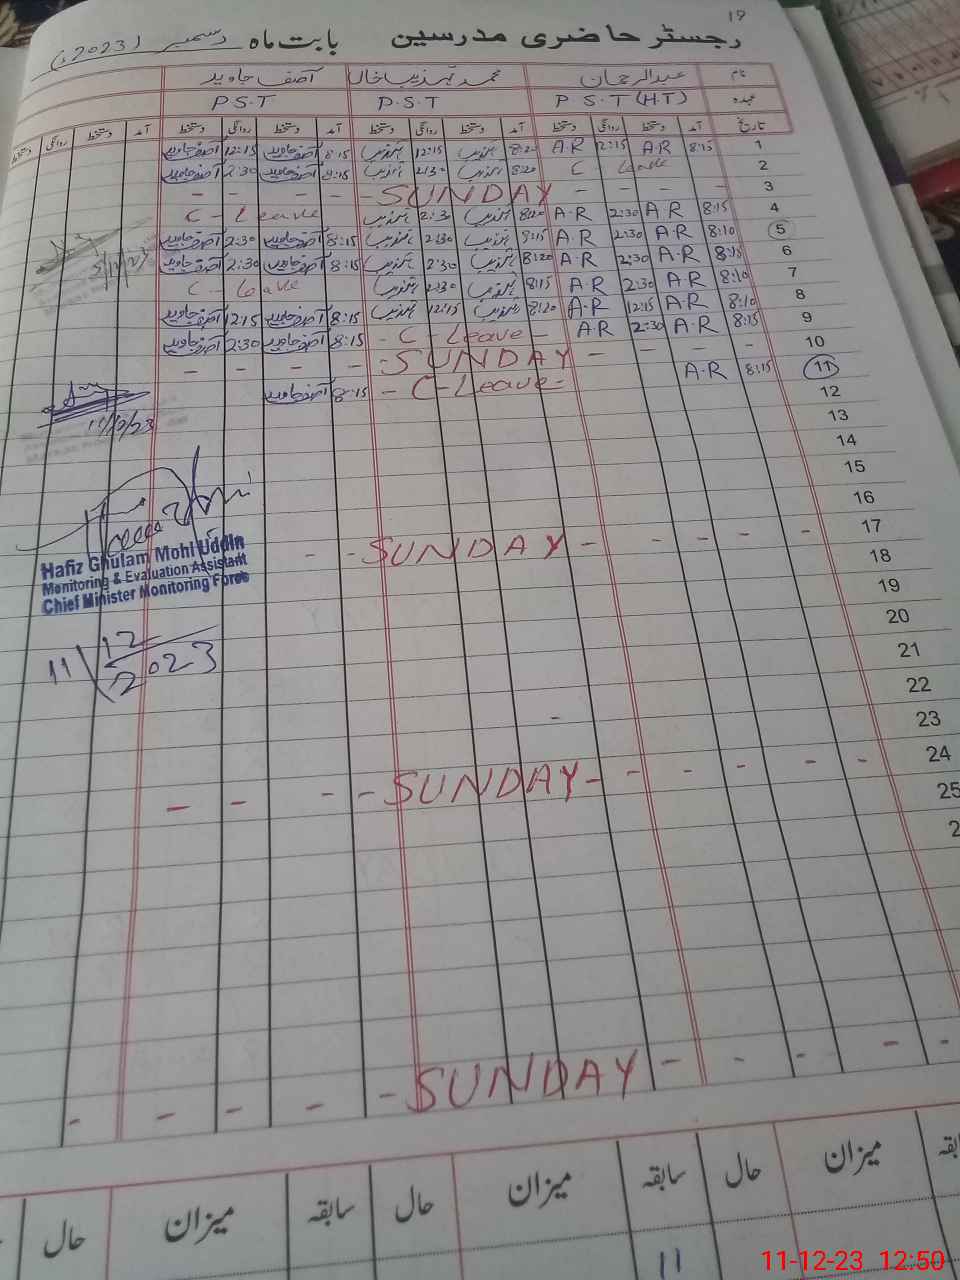 19
رجسٹر حاضری مدرسین بابت ماہ دسمبر (2023ء)
نام عبدالرحمان محمد تہذیب خان آصف جاوید
عہدہ P S T (H T) P.S.T P.S.T
تاریخ آمد دستخط روانگی دستخط آمد دستخط روانگی دستخط آمد دستخط روانگی دستخط آمد دستخط روانگی دستخط
1 8:15 A R 12:15 A-R 8:20 تہذیب 12:15 تہذیب 8:15 آصف جاوید 12:15 آصف جاوید
2 C - leave 8:20 تہذیب 2:30 تہذیب 8:15 آصف جاوید 2:30 آصف جاوید
3 - - - - SUNDAY - - - -
4 8:15 A R 2:30 A-R 8:20 تہذیب 2:30 تہذیب C - leave
5 8:10 A R 2:30 A R 8:15 تہذیب 2:30 تہذیب 8:15 آصف جاوید 2:30 آصف جاوید
5/12/23
6 8:15 A R 2:30 A R 8:20 تہذیب 2:30 تہذیب 8:15 آصف جاوید 2:30 آصف جاوید
7 8:10 A R 2:30 A R 8:15 تہذیب 2:30 تہذیب C - leave
8 8:10 A R 12:15 A-R 8:20 تہذیب 12:15 تہذیب 8:15 آصف جاوید 12:15 آصف جاوید
9 8:15 A-R 2:30 A R - C - Leave - 8:15 آصف جاوید 2:30 آصف جاوید
10 - - - - SUNDAY - - - -
11 8:15 A-R - C - Leave - 8:15 آصف جاوید
12
11/12/23
13
14
15
16
17 - - - - - SUNDAY - -
Hafiz Ghulam Mohi Uddin
Monitoring & Evaluation Assistant
Chief Minister Monitoring Force
18
19
20
11/12/2023
21
22
23
24 - - - - - - SUNDAY - - - -
25
2
- - - - - SUNDAY - - - - -
میزان حال سابقہ میزان حال سابقہ میزان حال
11
11-12-23 12:50